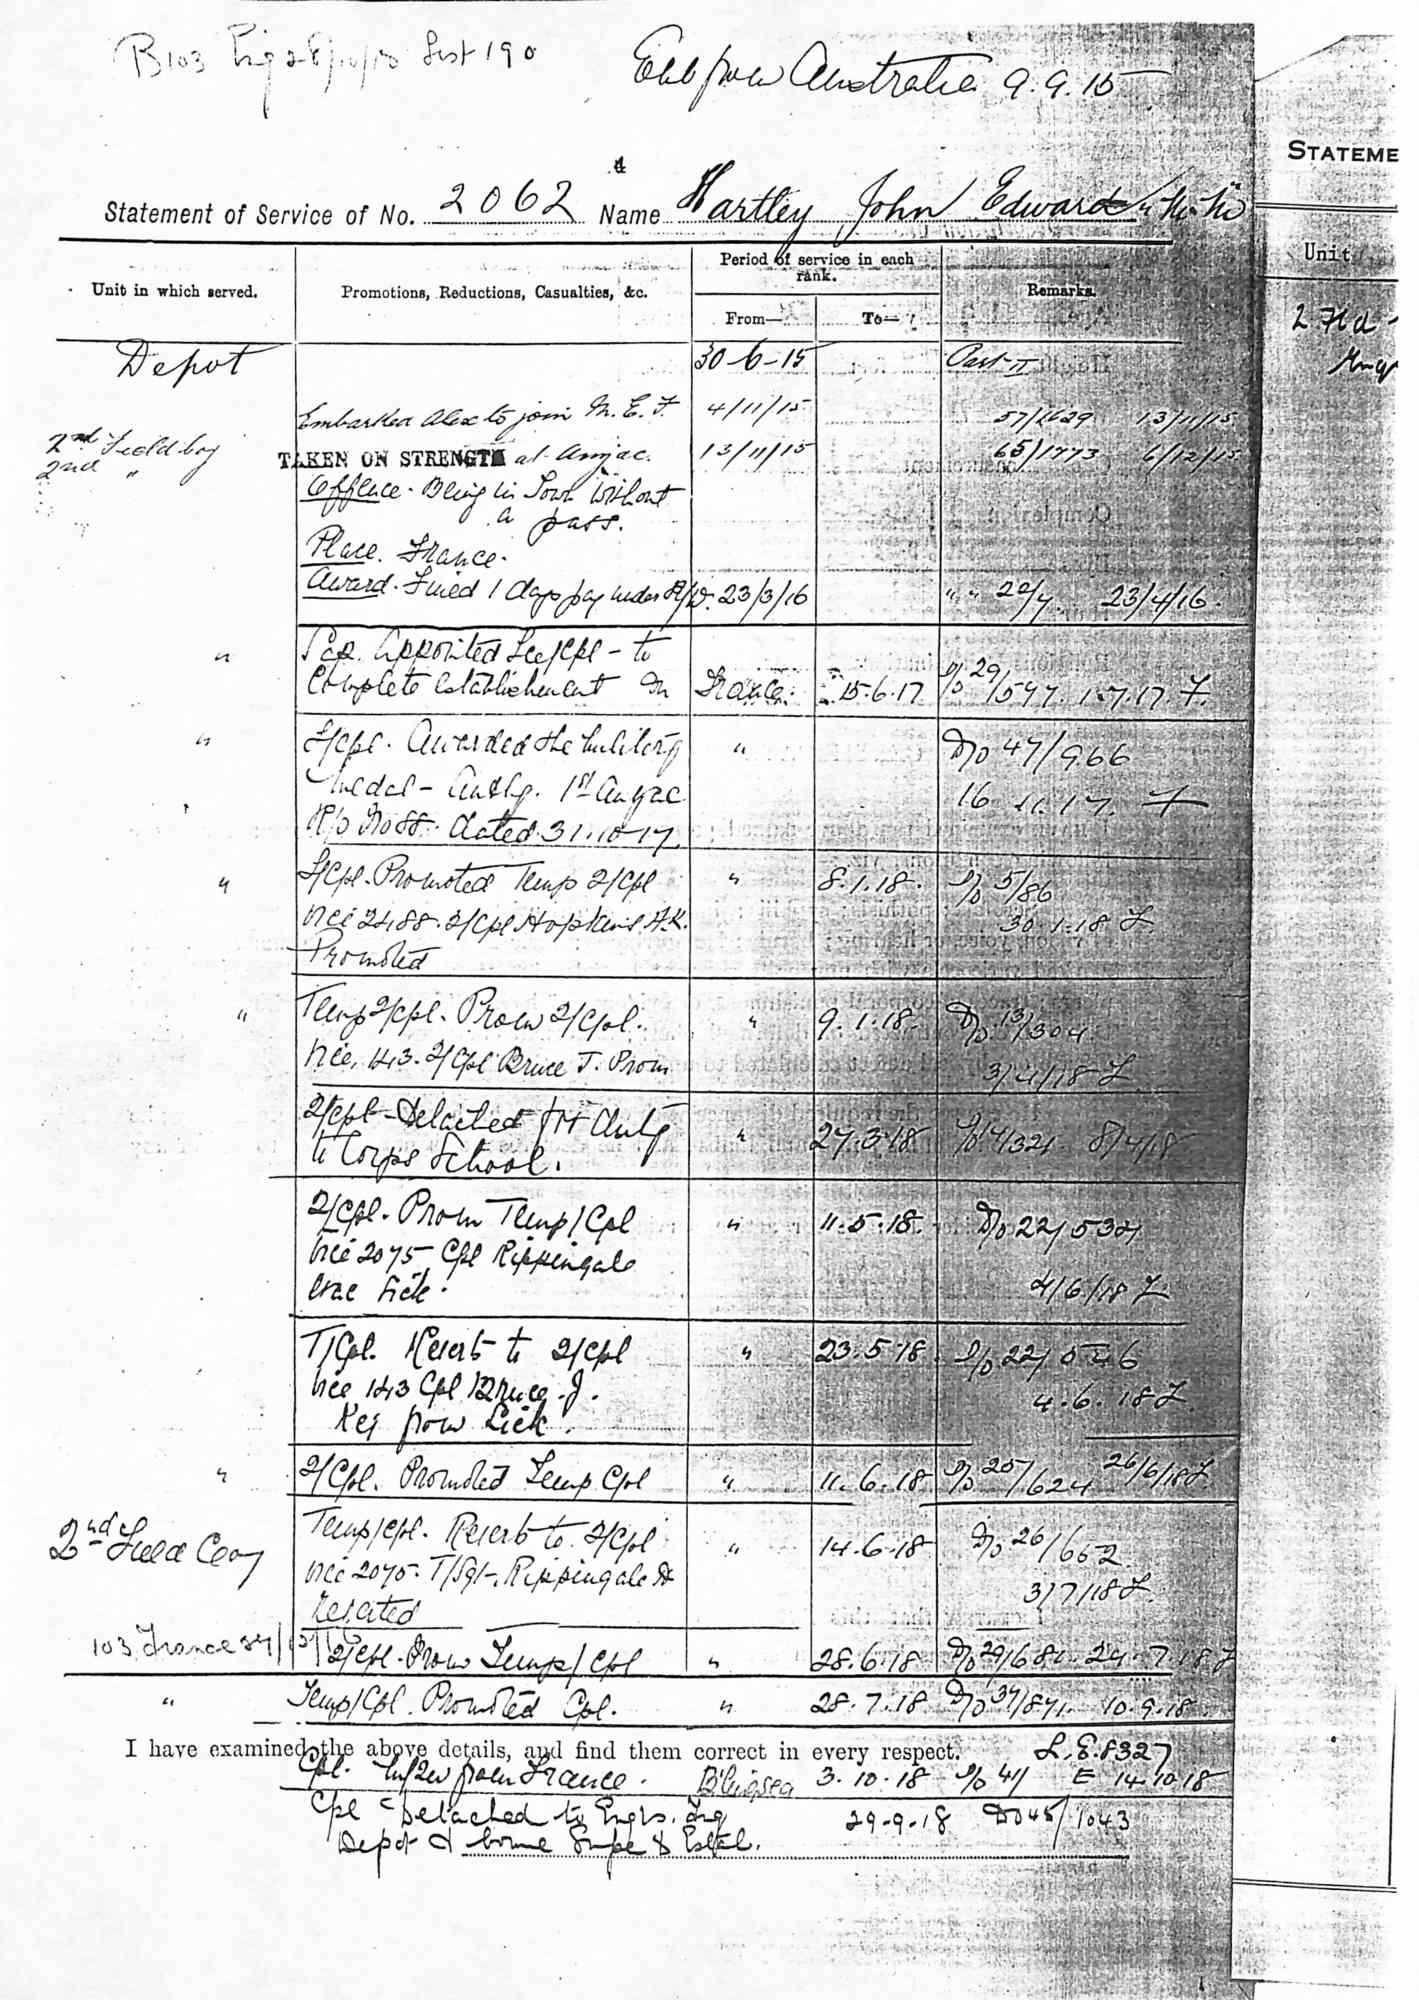 B103 Eng 28/10/18 List 190
Emb from Australia 9.9.15
STATEME
Statement of Service of No. 2062 Name Hartley John Edward M.M
Unit
Unit in which served.
Promotions, Reductions, Casualties, &c.
Period of service in each rank.
From—
To—
Remarks.
2 Fld
Depot 30-6-15 Part II
Embarked Alex to join M.E.F. 4/11/15 57/1629 13/11/15
2nd Field Coy
2nd " TAKEN ON STRENGTH at Anzac. 13/11/15 65/1773 6/12/15
Offence. Being in Town without
a pass.
Place. France.
Award. Fined 1 days pay under R/W. 23/3/16 " " 29/7 23/4/16.
" Sap. Appointed Lce/Cpl – to
Complete establishment In France. 15.6.17 D/O 29/597 1.7.17. F.
" L/Cpl. Awarded the Military " D/O 47/966
Medal – Authy. 1st Anzac 16.11.17. F
R/O No 88. dated 31.10.17.
" L/Cpl. Promoted Temp 2/Cpl " 8.1.18. D/O 5/86
vice 2488. 2/Cpl Hopkins A.K. 30.1.18 F.
Promoted
" Temp 2/Cpl. Prom 2/Cpl. " 9.1.18. D/O 13/304
vice. 143. 2/Cpl Bruce J. Prom 3/4/18 F
2/Cpl – Detached for duty " 27.3.18 D/O 14/321 8/4/18
to Corps School.
2/Cpl. Prom Temp/Cpl " 11.5.18. D/O 22/532
vice 2075 Cpl Rippingale 4/6/18 F
evac Sick.
T/Cpl. Reverts to 2/Cpl " 23.5.18 D/O 22/546
vice 143 Cpl Bruce. J. 4.6.18 F.
Rej from Sick.
" 2/Cpl. Promoted Temp Cpl " 11.6.18 D/O 25/624 26/6/18 F
2nd Field Coy Temp/Cpl. Reverts to 2/Cpl " 14.6.18 D/O 26/652
vice 2075. T/Sgt. Rippingale 3/7/18 F.
Reverted
103 France 2/Cpl. Prom Temp/Cpl " 28.6.18 D/O 29/681 24.7.18 F
" Temp/Cpl. Promoted Cpl. " 28.7.18 D/O 37/871. 10.9.18
I have examined the above details, and find them correct in every respect. L.E.8327
Cpl. from France. 3.10.18 D/O 41/ E 14.10.18
Cpl Detached to Engrs. Trg 29-9-18 DO 45/1043
Depot & borne Supe to Estab.